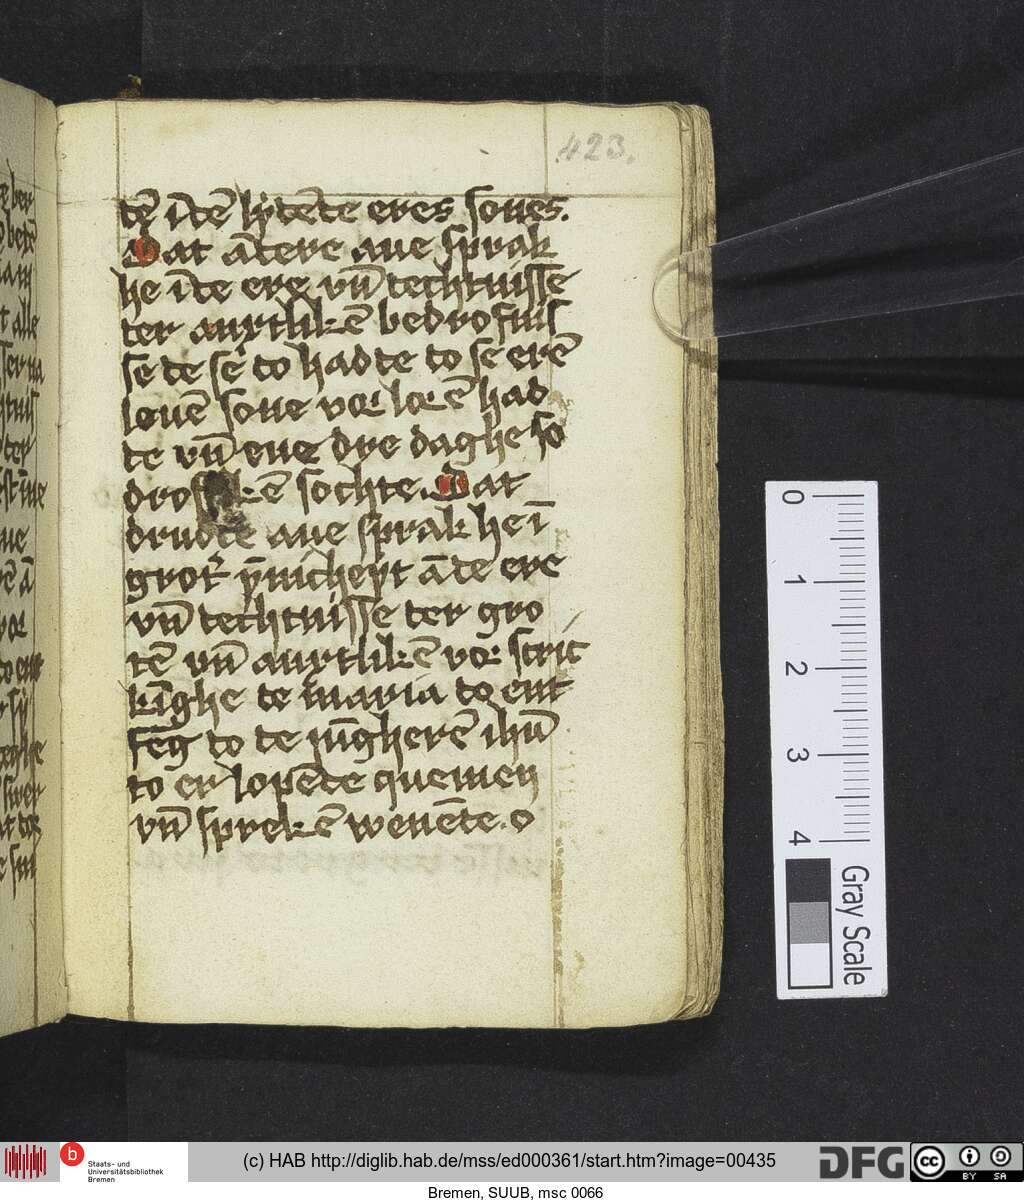 423.
tē īdē lydēte eres sones.
Dat ādere aue sprak
he īde ere vn̄ techtnisse
ter anxtlikē bedrofnis
se te se to hadde to se erē
louē sone vor lorē had
de vn̄ ene dre daghe so
kē sochte. Dat
drudde aue sprak he ī
grot īnicheyt āde ere
vn̄ techtnisse ter gro
tē vn̄ anxtlikē vor scric
kīghe te maria to ent
fēg to te iūgherē ihū
to er lopēde quemen
vn̄ sprekē wenēte. o
0
1
2
3
4
Gray Scale
b
Staats- und
Universitätsbibliothek
Bremen
(c) HAB http://diglib.hab.de/mss/ed000361/start.htm?image=00435
DFG
cc
BY SA
Bremen, SUUB, msc 0066